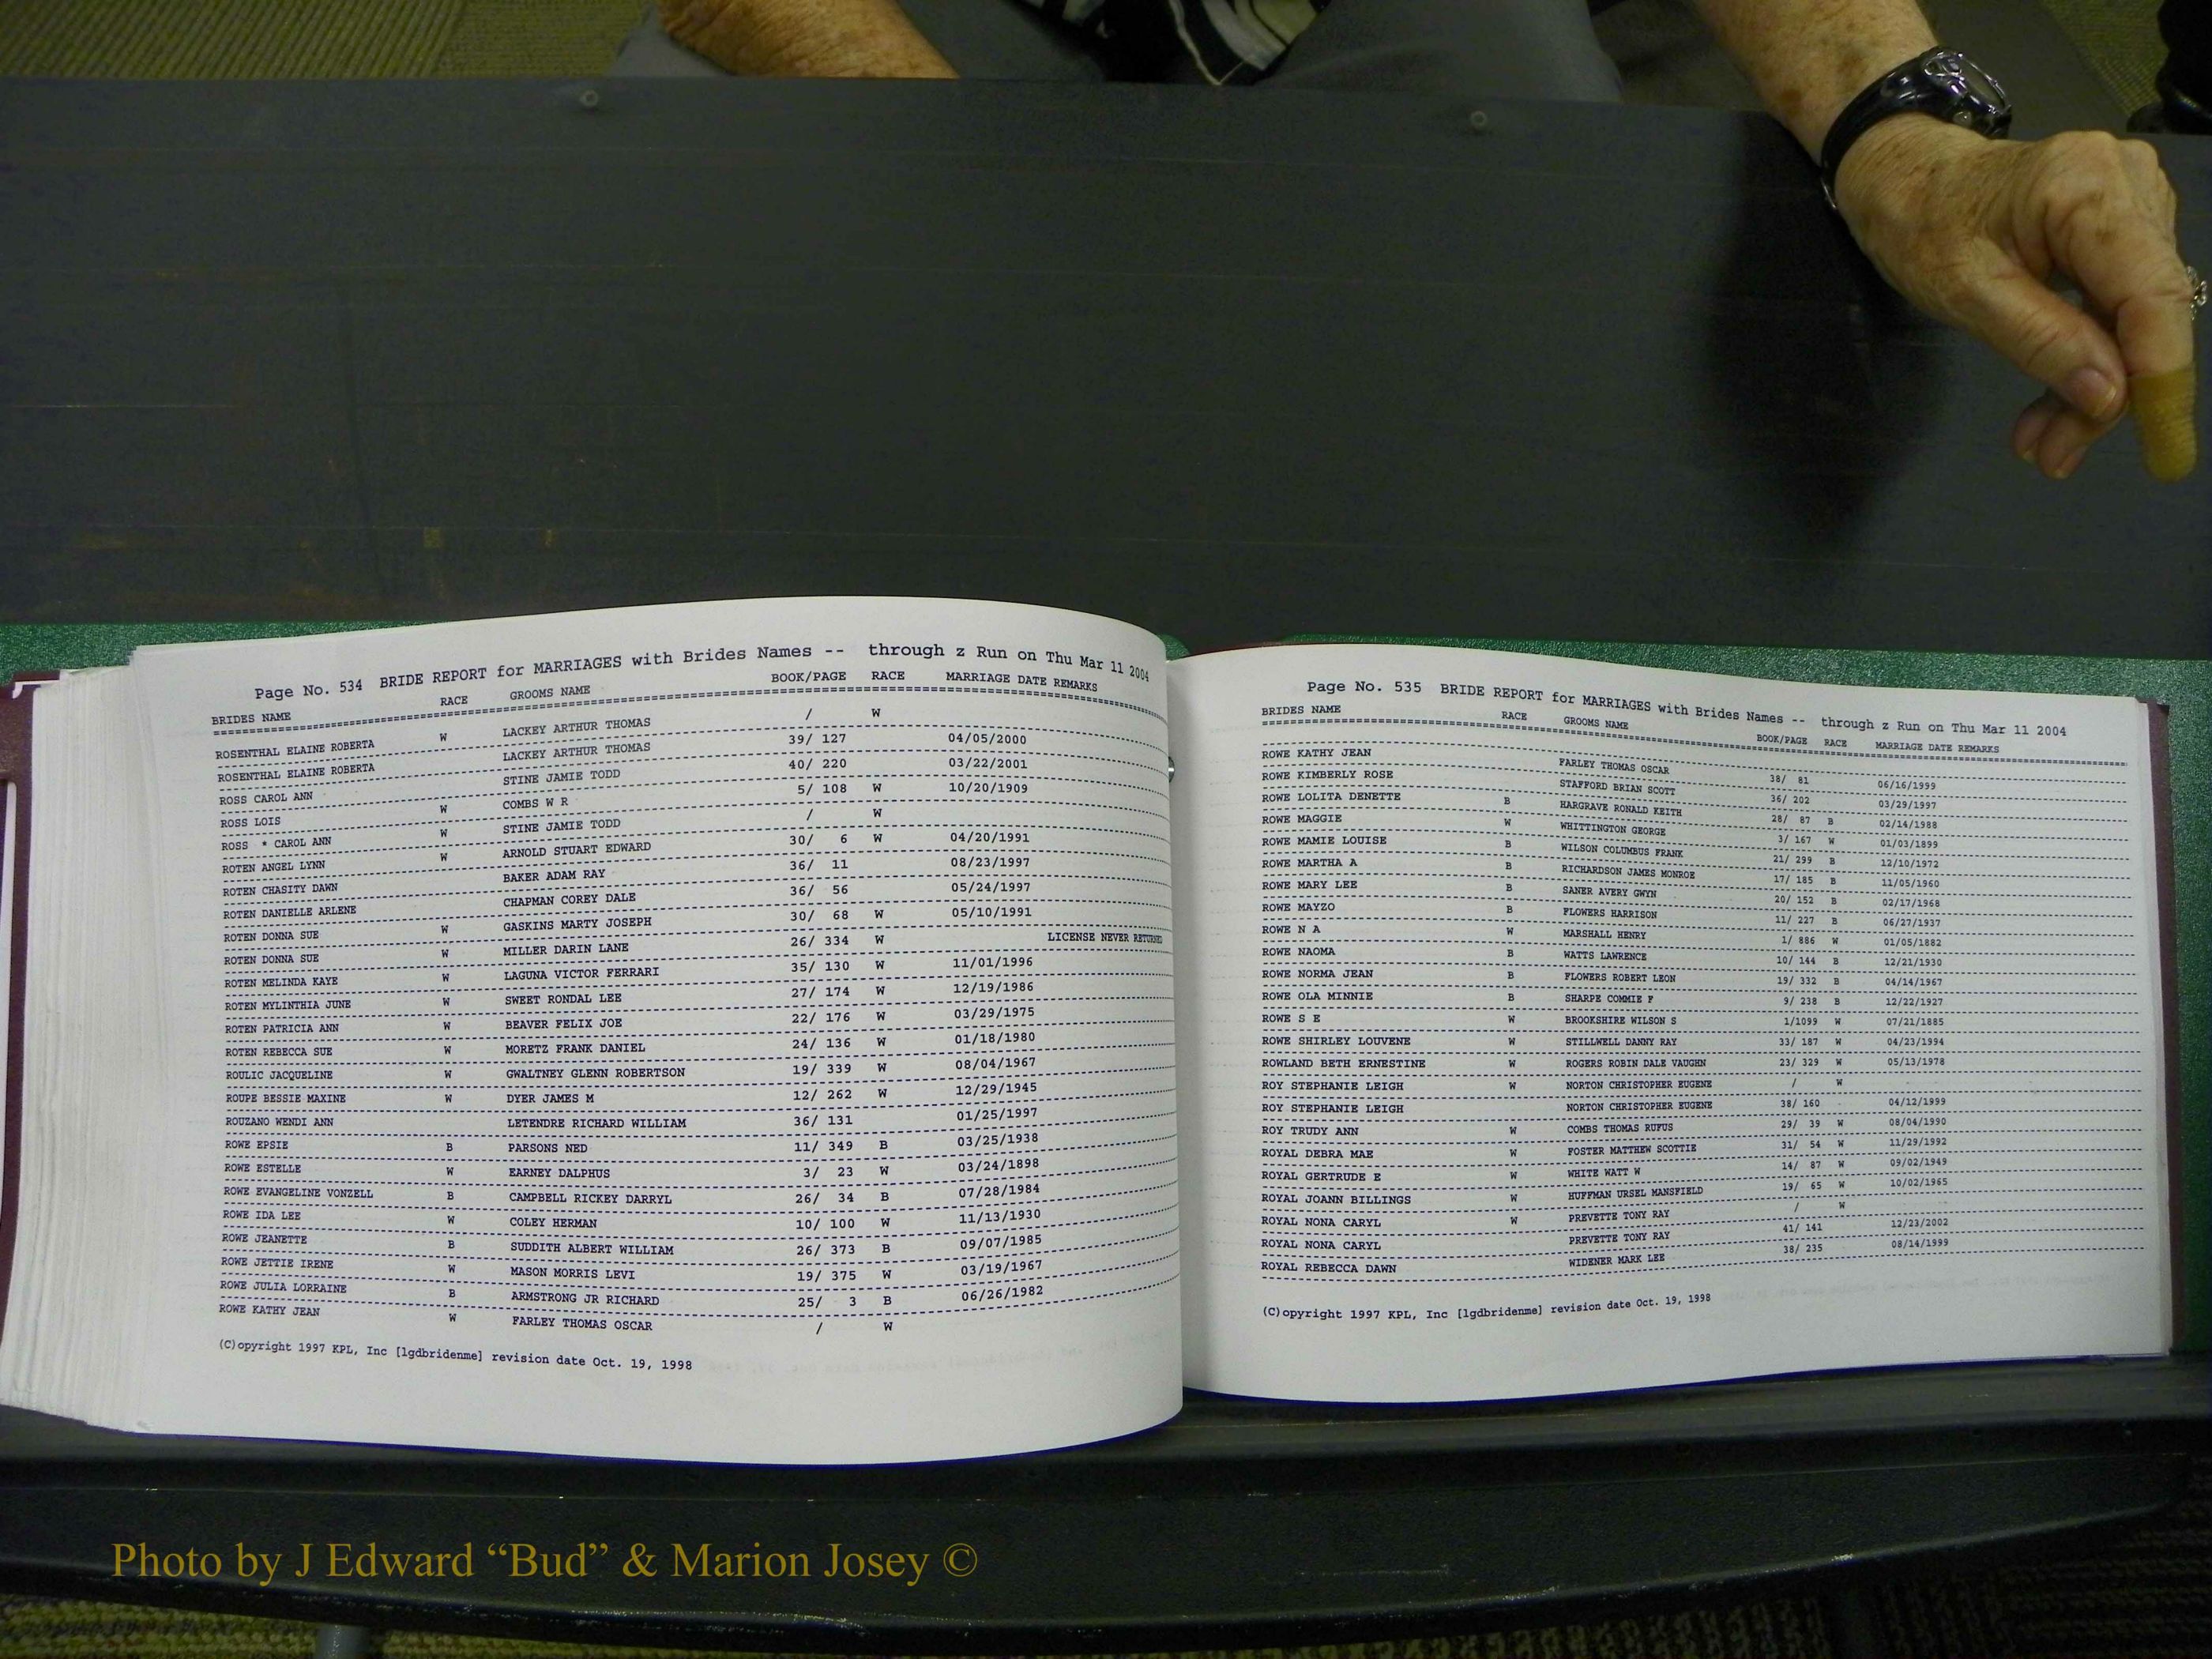 Page No. 534 BRIDE REPORT for MARRIAGES with Brides Names -- through z Run on Thu Mar 11 2004
BRIDES NAME RACE GROOMS NAME BOOK/PAGE RACE MARRIAGE DATE REMARKS
ROSENTHAL ELAINE ROBERTA W LACKEY ARTHUR THOMAS / W
ROSENTHAL ELAINE ROBERTA LACKEY ARTHUR THOMAS 39/ 127 04/05/2000
ROSS CAROL ANN STINE JAMIE TODD 40/ 220 03/22/2001
ROSS LOIS W COMBS W R 5/ 108 W 10/20/1909
ROSS * CAROL ANN W STINE JAMIE TODD / W
ROTEN ANGEL LYNN W ARNOLD STUART EDWARD 30/ 6 W 04/20/1991
ROTEN CHASITY DAWN BAKER ADAM RAY 36/ 11 08/23/1997
ROTEN DANIELLE ARLENE CHAPMAN COREY DALE 36/ 56 05/24/1997
ROTEN DONNA SUE W GASKINS MARTY JOSEPH 30/ 68 W 05/10/1991
ROTEN DONNA SUE W MILLER DARIN LANE 26/ 334 W LICENSE NEVER RETURNED
ROTEN MELINDA KAYE W LAGUNA VICTOR FERRARI 35/ 130 W 11/01/1996
ROTEN MYLINTHIA JUNE W SWEET RONDAL LEE 27/ 174 W 12/19/1986
ROTEN PATRICIA ANN W BEAVER FELIX JOE 22/ 176 W 03/29/1975
ROTEN REBECCA SUE W MORETZ FRANK DANIEL 24/ 136 W 01/18/1980
ROULIC JACQUELINE W GWALTNEY GLENN ROBERTSON 19/ 339 W 08/04/1967
ROUPE BESSIE MAXINE W DYER JAMES M 12/ 262 W 12/29/1945
ROUZANO WENDI ANN LETENDRE RICHARD WILLIAM 36/ 131 01/25/1997
ROWE EPSIE B PARSONS NED 11/ 349 B 03/25/1938
ROWE ESTELLE W EARNEY DALPHUS 3/ 23 W 03/24/1898
ROWE EVANGELINE VONZELL B CAMPBELL RICKEY DARRYL 26/ 34 B 07/28/1984
ROWE IDA LEE W COLEY HERMAN 10/ 100 W 11/13/1930
ROWE JEANETTE B SUDDITH ALBERT WILLIAM 26/ 373 B 09/07/1985
ROWE JETTIE IRENE W MASON MORRIS LEVI 19/ 375 W 03/19/1967
ROWE JULIA LORRAINE B ARMSTRONG JR RICHARD 25/ 3 B 06/26/1982
ROWE KATHY JEAN W FARLEY THOMAS OSCAR / W
(C)opyright 1997 KPL, Inc [lgdbridenme] revision date Oct. 19, 1998
Page No. 535 BRIDE REPORT for MARRIAGES with Brides Names -- through z Run on Thu Mar 11 2004
BRIDES NAME RACE GROOMS NAME BOOK/PAGE RACE MARRIAGE DATE REMARKS
ROWE KATHY JEAN FARLEY THOMAS OSCAR 38/ 81 06/16/1999
ROWE KIMBERLY ROSE STAFFORD BRIAN SCOTT 36/ 202 03/29/1997
ROWE LOLITA DENETTE B HARGRAVE RONALD KEITH 28/ 87 B 02/14/1988
ROWE MAGGIE W WHITTINGTON GEORGE 3/ 167 W 01/03/1899
ROWE MAMIE LOUISE B WILSON COLUMBUS FRANK 21/ 299 B 12/10/1972
ROWE MARTHA A B RICHARDSON JAMES MONROE 17/ 185 B 11/05/1960
ROWE MARY LEE B SANER AVERY GWYN 20/ 152 B 02/17/1968
ROWE MAYZO B FLOWERS HARRISON 11/ 227 B 06/27/1937
ROWE N A W MARSHALL HENRY 1/ 886 W 01/05/1882
ROWE NAOMA B WATTS LAWRENCE 10/ 144 B 12/21/1930
ROWE NORMA JEAN B FLOWERS ROBERT LEON 19/ 332 B 04/14/1967
ROWE OLA MINNIE B SHARPE COMMIE F 9/ 238 B 12/22/1927
ROWE S E W BROOKSHIRE WILSON S 1/1099 W 07/21/1885
ROWE SHIRLEY LOUVENE W STILLWELL DANNY RAY 33/ 187 W 04/23/1994
ROWLAND BETH ERNESTINE W ROGERS ROBIN DALE VAUGHN 23/ 329 W 05/13/1978
ROY STEPHANIE LEIGH W NORTON CHRISTOPHER EUGENE / W
ROY STEPHANIE LEIGH NORTON CHRISTOPHER EUGENE 38/ 160 04/12/1999
ROY TRUDY ANN W COMBS THOMAS RUFUS 29/ 39 W 08/04/1990
ROYAL DEBRA MAE W FOSTER MATTHEW SCOTTIE 31/ 54 W 11/29/1992
ROYAL GERTRUDE E W WHITE WATT W 14/ 87 W 09/02/1949
ROYAL JOANN BILLINGS W HUFFMAN URSEL MANSFIELD 19/ 65 W 10/02/1965
ROYAL NONA CARYL W PREVETTE TONY RAY / W
ROYAL NONA CARYL PREVETTE TONY RAY 41/ 141 12/23/2002
ROYAL REBECCA DAWN WIDENER MARK LEE 38/ 235 08/14/1999
(C)opyright 1997 KPL, Inc [lgdbridenme] revision date Oct. 19, 1998
Photo by J Edward “Bud” & Marion Josey ©